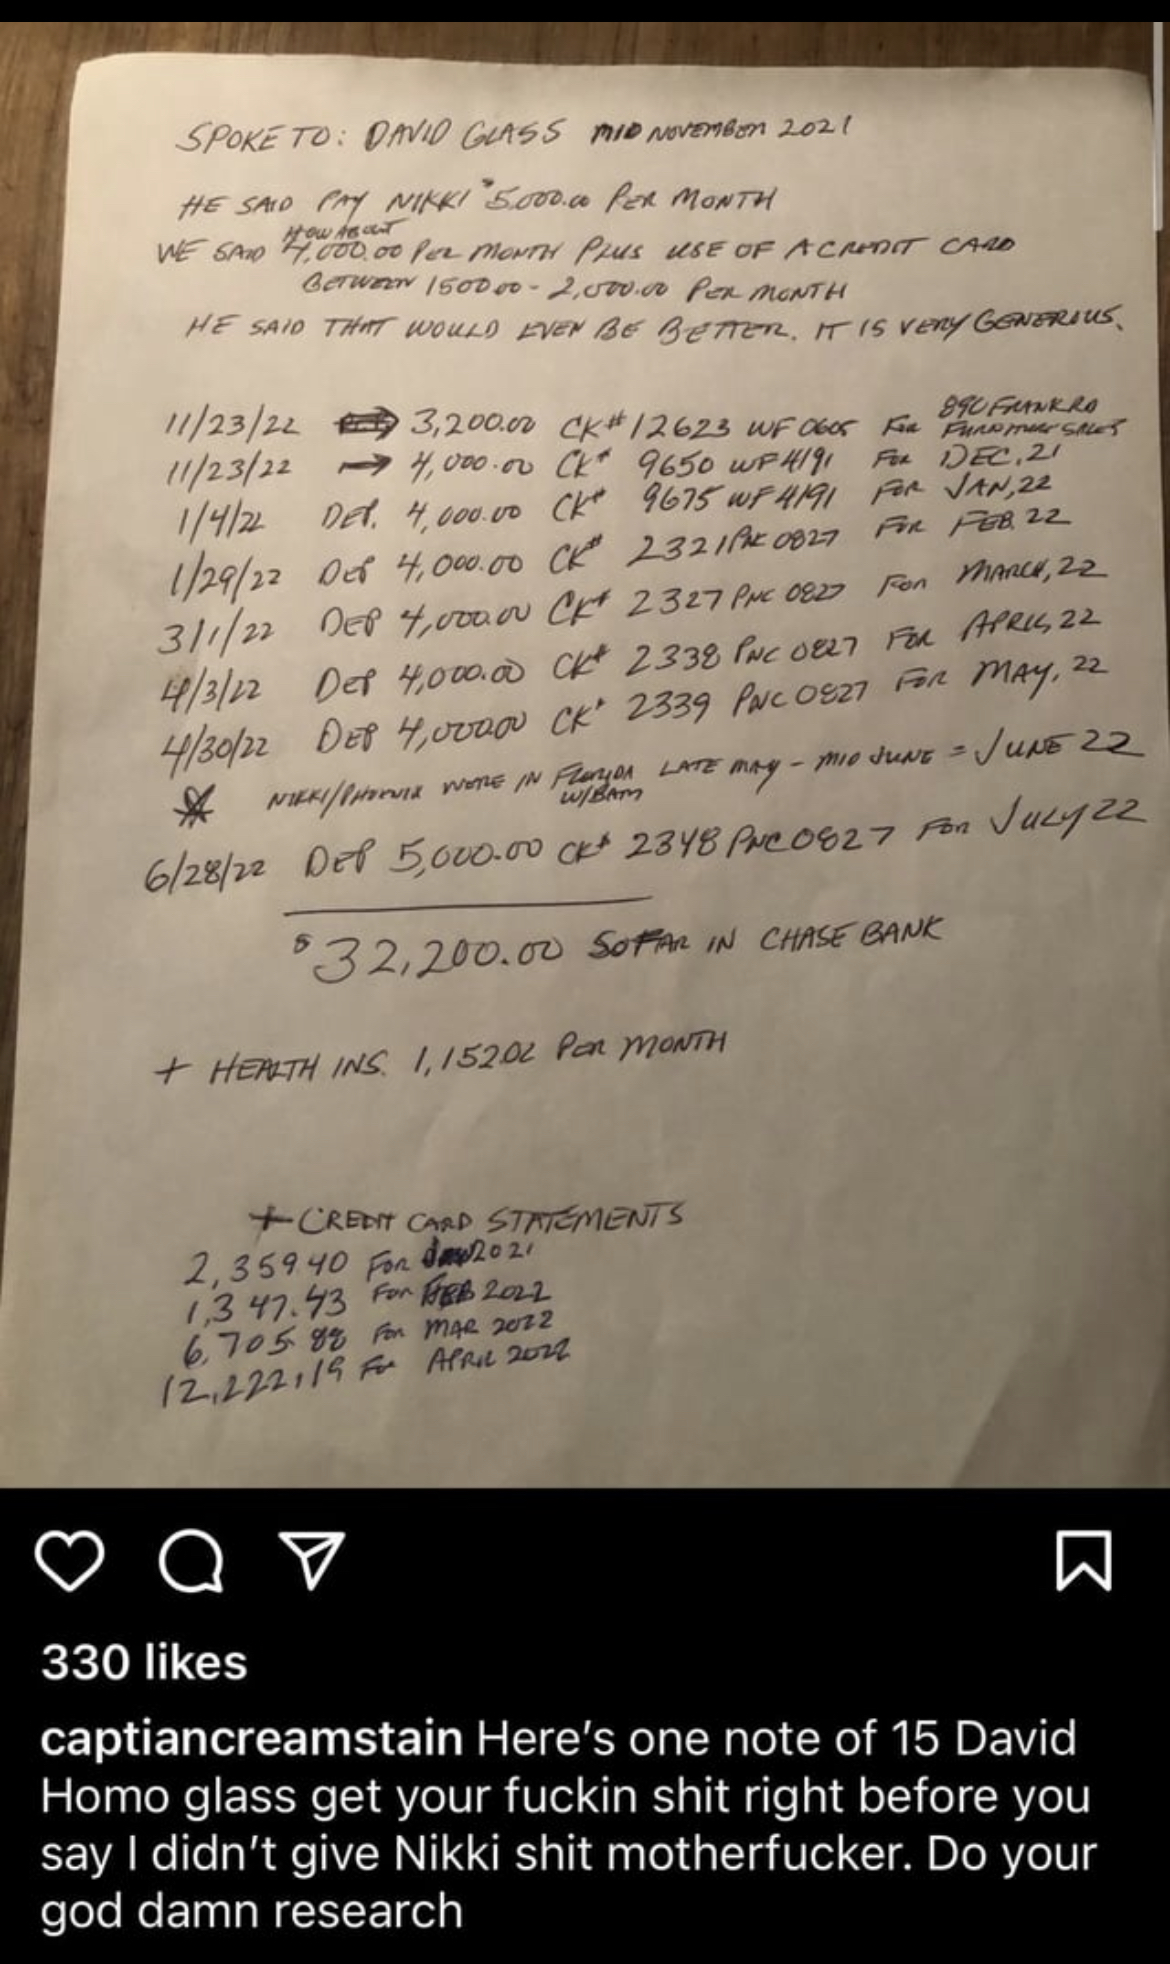 SPOKE TO: DAVID GLASS MID NOVEMBER 2021
HE SAID PAY NIKKI $5,000.00 PER MONTH
HOW ABOUT
WE SAID 4,000.00 PER MONTH PLUS USE OF A CREDIT CARD
BETWEEN 1500.00 - 2,000.00 PER MONTH
HE SAID THAT WOULD EVEN BE BETTER. IT IS VERY GENERIOUS.
11/23/22 3,200.00 CK# 12623 WF 0605 FOR 890 FRANK RD FURNITURE SALES
11/23/22 → 4,000.00 CK# 9650 WF 4191 FOR DEC, 21
1/4/22 DEP. 4,000.00 CK# 9675 WF 4191 FOR JAN, 22
1/29/22 DEP 4,000.00 CK# 2321 PNC 0827 FOR FEB. 22
3/1/22 DEP 4,000.00 CK# 2327 PNC 0827 FOR MARCH, 22
4/3/22 DEP 4,000.00 CK# 2338 PNC 0827 FOR APRIL, 22
4/30/22 DEP 4,000.00 CK# 2339 PNC 0827 FOR MAY, 22
NIKKI/PHOENIX WERE IN FLORIDA LATE MAY - MID JUNE = JUNE 22
W/BAM
6/28/22 DEP 5,000.00 CK# 2348 PNC 0827 FOR JULY 22
$32,200.00 SO FAR IN CHASE BANK
+ HEALTH INS. 1,152.02 PER MONTH
+ CREDIT CARD STATEMENTS
2,359.40 FOR 2021
1,347.43 FOR FEB 2022
6,705.88 FOR MAR 2022
12,222.19 FOR APRIL 2022
330 likes
captiancreamstain Here's one note of 15 David
Homo glass get your fuckin shit right before you
say I didn't give Nikki shit motherfucker. Do your
god damn research